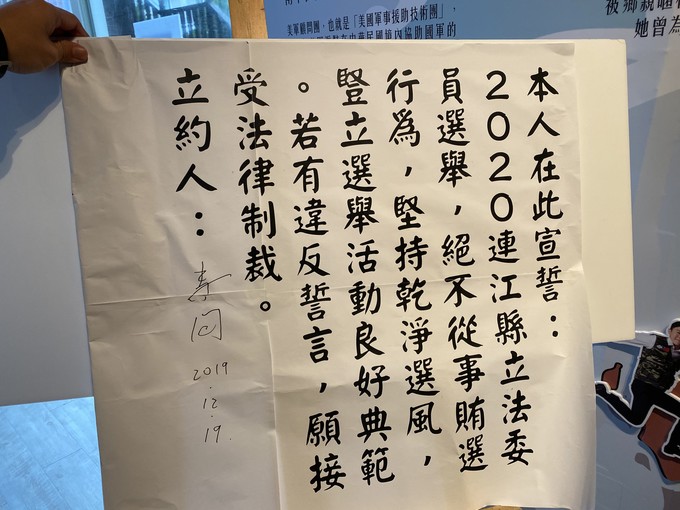 美軍顧問團，也就是「美國軍事援助技術團」，
在中華民國境內協助國軍的
被鄉親暱
她曾為
本人在此宣誓：
2020連江縣立法委
員選舉，絕不從事賄選
行爲，堅持乾淨選風，
豎立選舉活動良好典範
。若有違反誓言，願接
受法律制裁。
立約人：李問
2019.12.19.